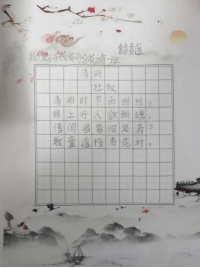 清明
杜牧
清明时节雨纷纷，
路上行人欲断魂。
借问酒家何处有？
牧童遥指杏花村。